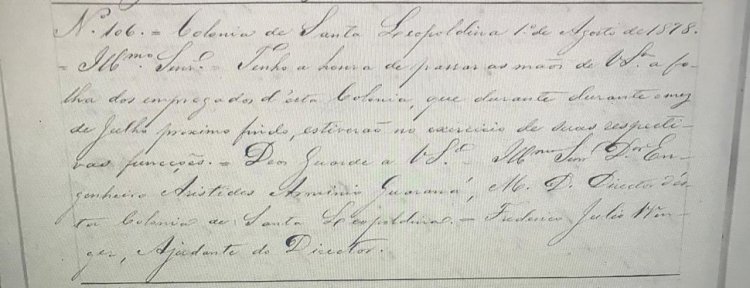 N.º 106. = Colonia de Santa Leopoldina 1º de Agosto de 1878.
= Illmo. Senr. = Tenho a honra de passar as mãos de V.Sª. a fo-
lha dos empregados d'esta Colonia, que durante durante o mez
de Julho proximo findo, estiverão no exercicio de suas respecti-
vas funcções. = Deos Guarde a V.Sª. = Illmo Senr. Dor. En-
genheiro Aristides Arminio Guaraná, M. D. Director d'es-
ta Colonia de Santa Leopoldina. = Frederico Julio
Ajudante do Director.